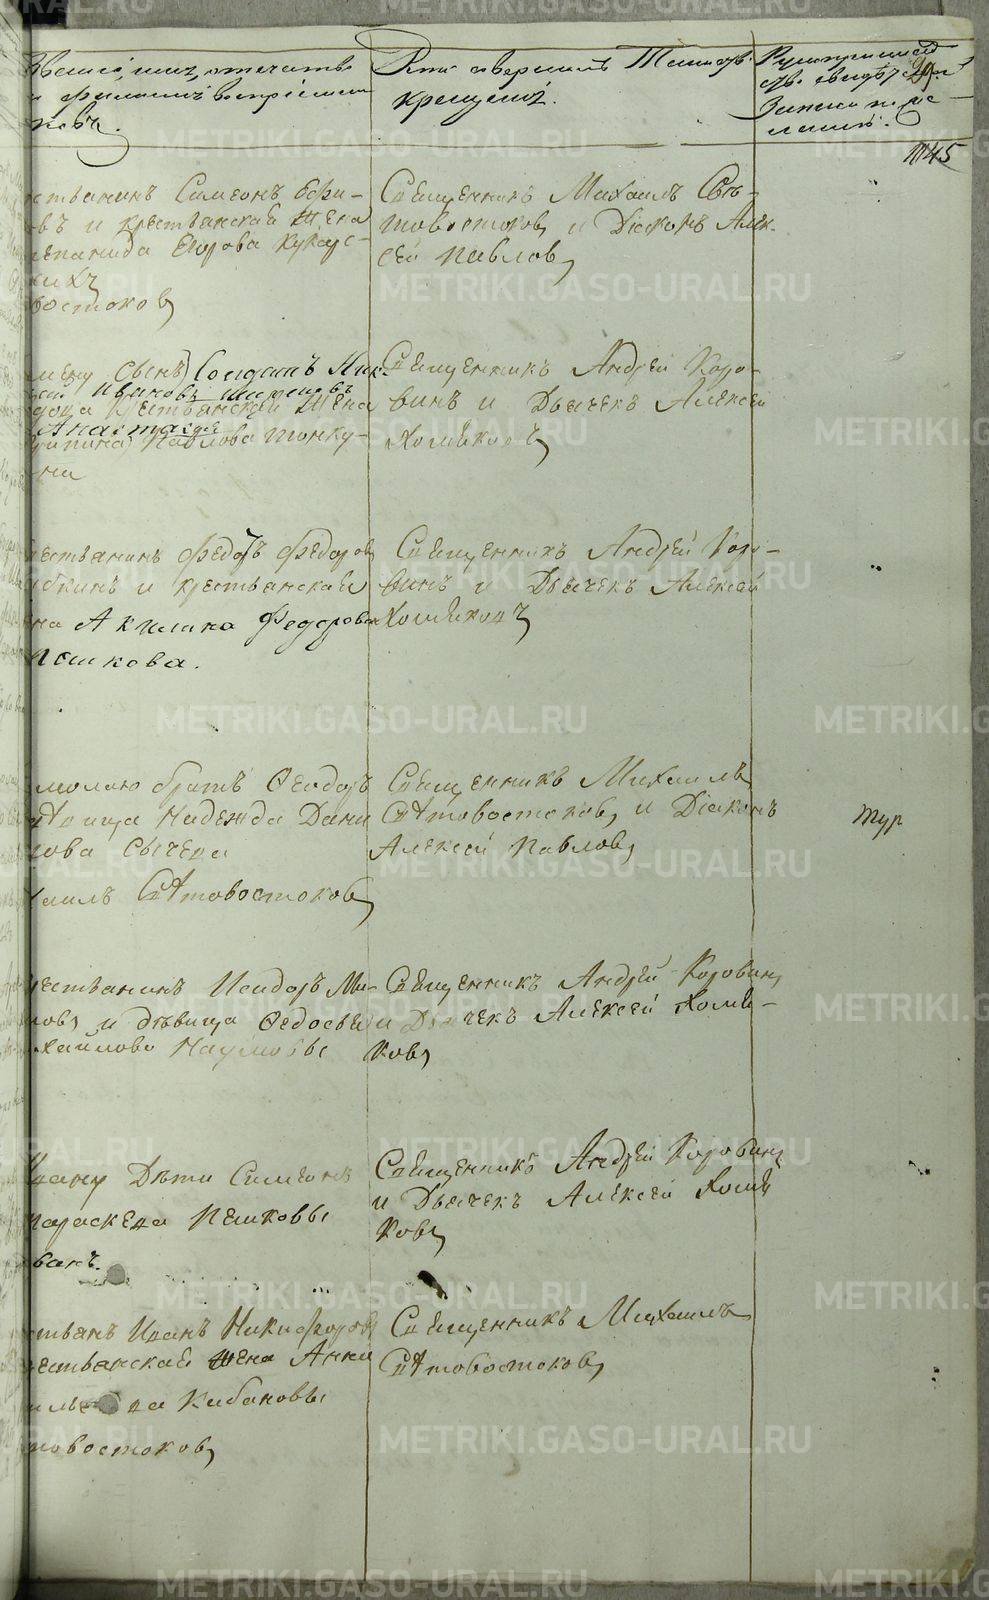 Званіе, имя, отчество
и фамилія воспріемни
ковъ.
Кто совершалъ Таинство
крещенія.
Рукоприкладст
во свидѣтелей
записи по же
ланію.
29
1145
естьянинъ Симеонъ Ефи-
въ и крестьянская жена
епанида Егорова Кукарс-
кихъ
востоковъ
Священникъ Михаилъ Свѣ-
товостоковъ и Діаконъ Алек-
сѣй Павловъ
сынъ Солдатъ
Ивановъ
крестьянская жена
Анастасія
Павлова
Священникъ Андрей Коро-
винъ и Дьячекъ Алексей
Хомяковъ
естьянинъ Федотъ Федоровъ
бкинъ и крестьянская
на Акилина Федорова
пешкова.
Священникъ Андрей Коро-
винъ и Дьячекъ Алексей
Хомяковъ
братъ Феодоръ
вица Надежда Дани
лова Сычева
хаилъ Святовостоковъ
Священникъ Михаилъ
Святовостоковъ и Діаконъ
Алексей Павловъ
тур
рестьянинъ Исидоръ Ми-
ловъ и дѣвица Федосья
хаилова Наумовы
Священникъ Андрей Коровинъ
и Дьячекъ Алексей Хомя-
ковъ
Дѣти Симеонъ
параскева Пешковы
ванъ.
Священникъ Андрей Коровинъ
и Дьячекъ Алексей Хомя
ковъ
стьянъ Иванъ Никифоровъ
естьянская жена Анна
Кибановы
товостоковъ
Священникъ Михаилъ
Святовостоковъ
METRIKI.GASO-URAL.RU